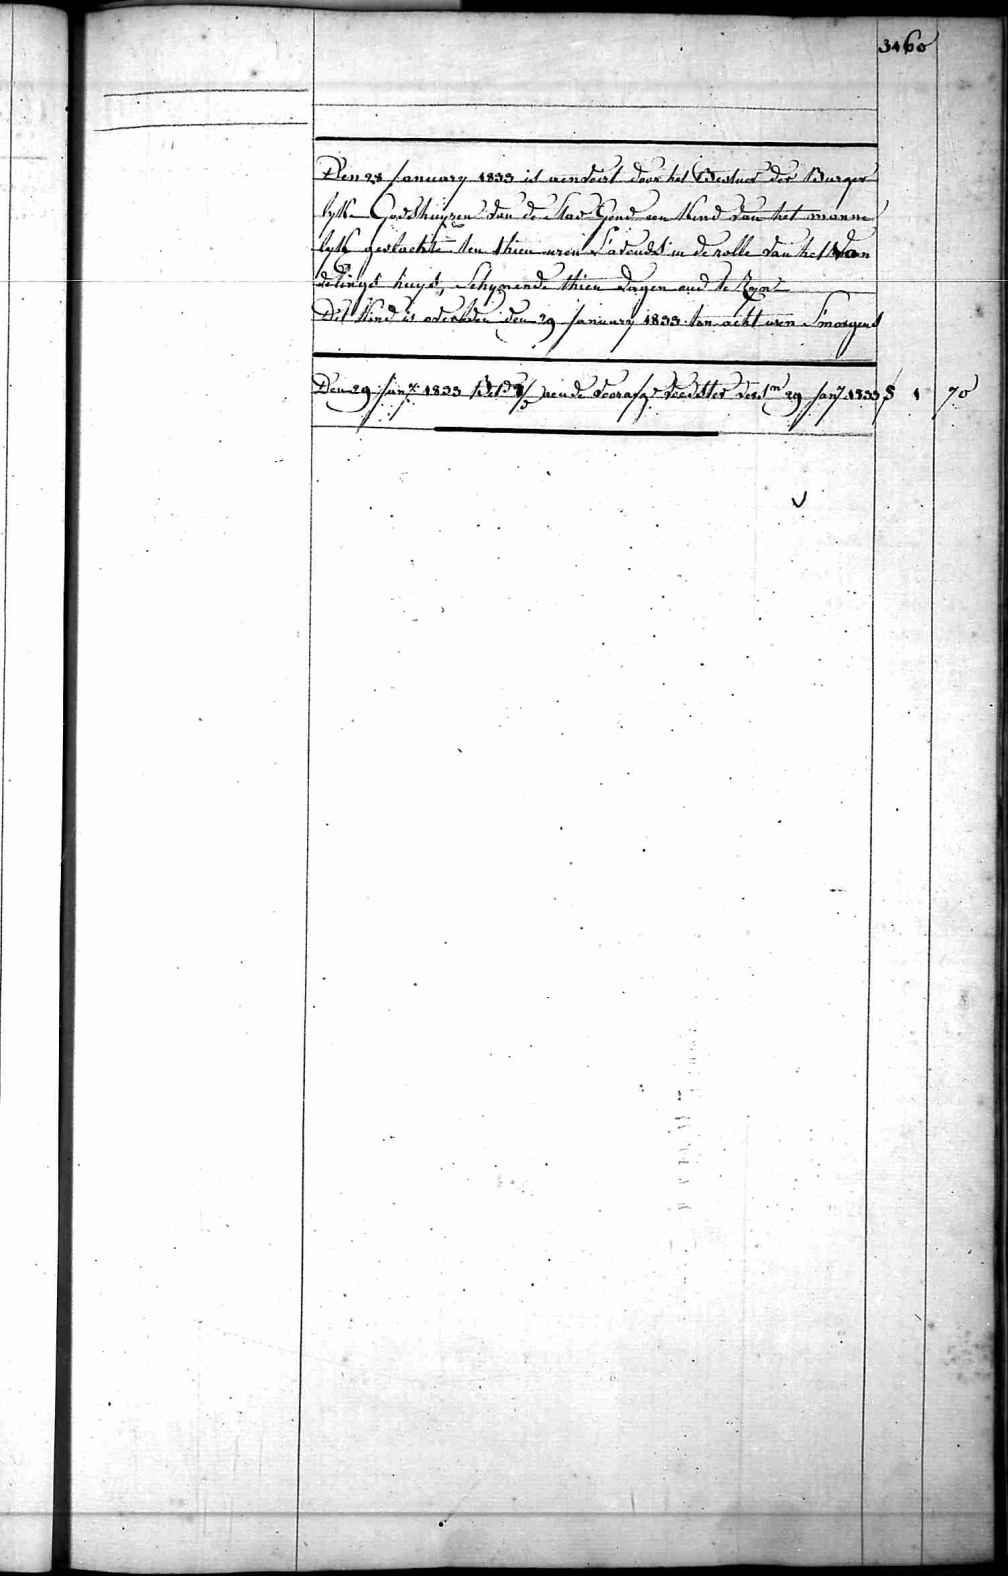 3460
Den 28 January 1833 is aenveert door het Bestuer der Burger
lyke Godshuyzen van de Stad Gend een Kind van het manne
lyk geslachte ten thien uren S'avonds in de rolle van het Von
delings huys, Schynende thien dagen oud te Zyn
Dit Kind is overleden den 29 January 1833 ten acht uren Smorgens
Den 29 Jany 1833 aende voorasz Voedster 29 Jany 1833 § 1 70